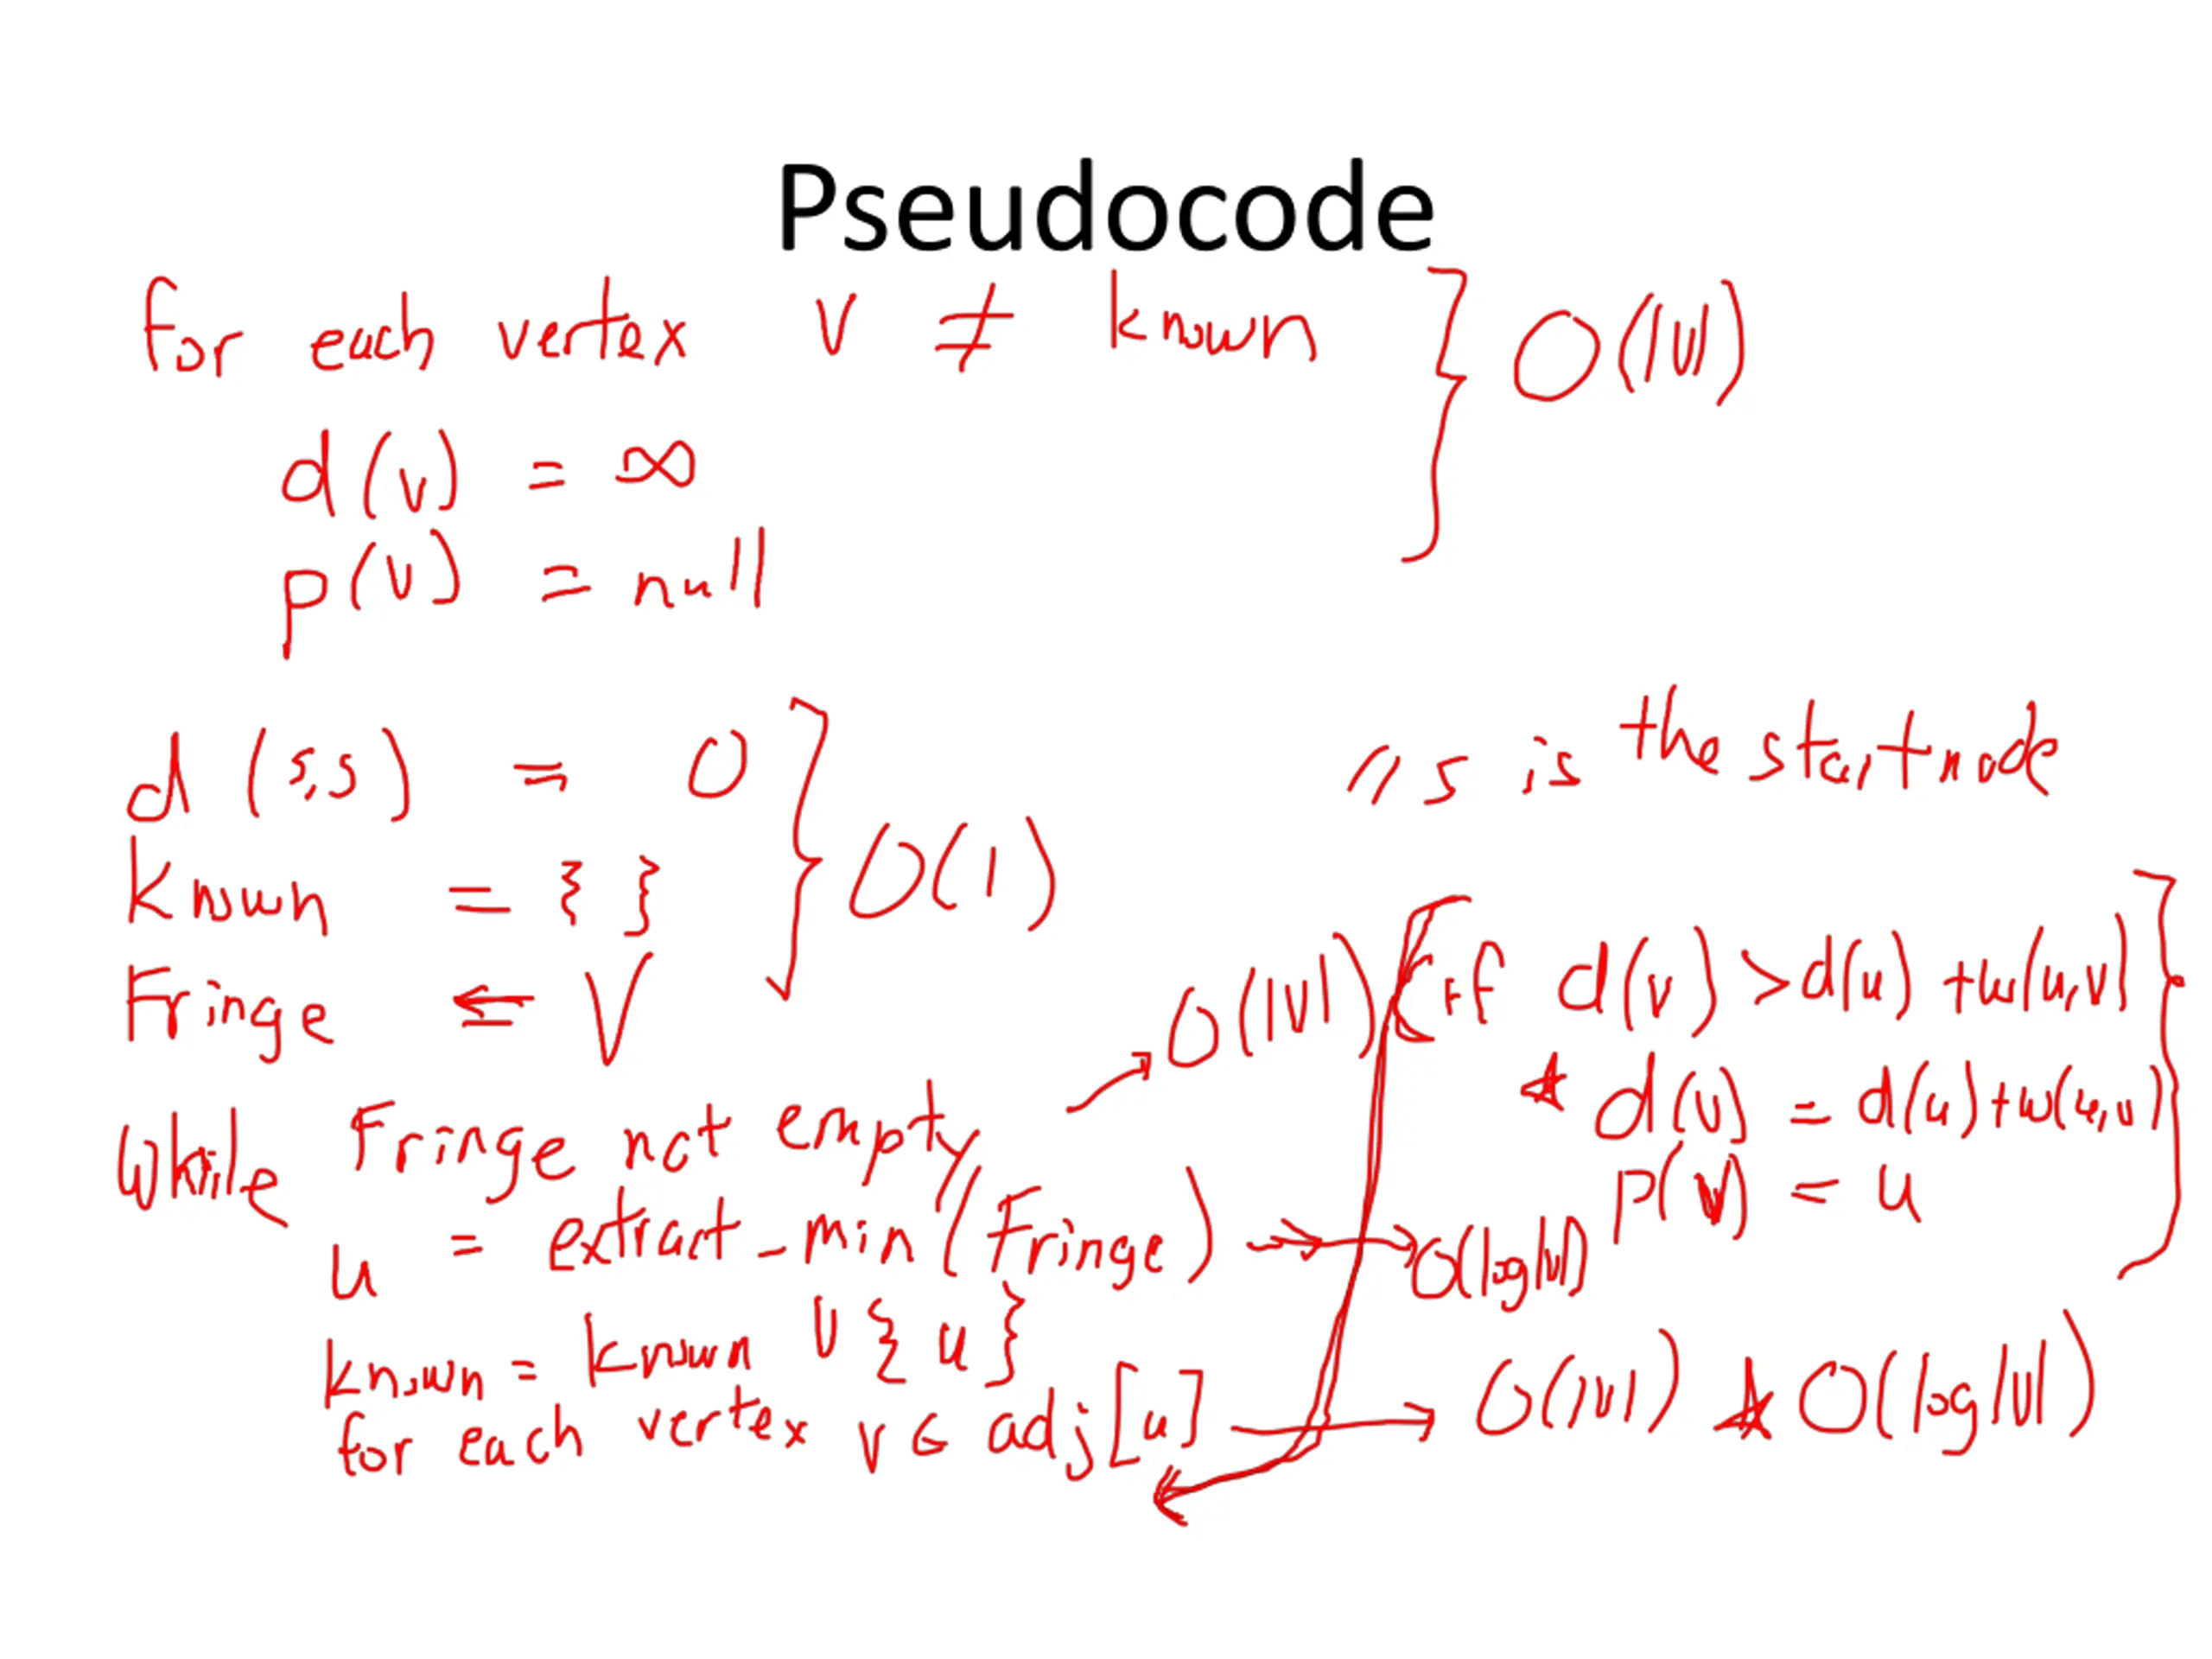 Pseudocode
for each vertex v ≠ known } O(|V|)
d(v) = ∞
p(v) = null
d(s,s) = 0 // s is the start node
known = { } } O(1)
Fringe <= V
While Fringe not empty → O(|V|)
u = extract_min(Fringe) → O(log|V|)
known = known U { u }
for each vertex v ∈ adj[u] → O(|V|) * O(log|V|)
if d(v) > d(u) + w(u,v)
* d(v) = d(u) + w(u,v)
p(v) = u